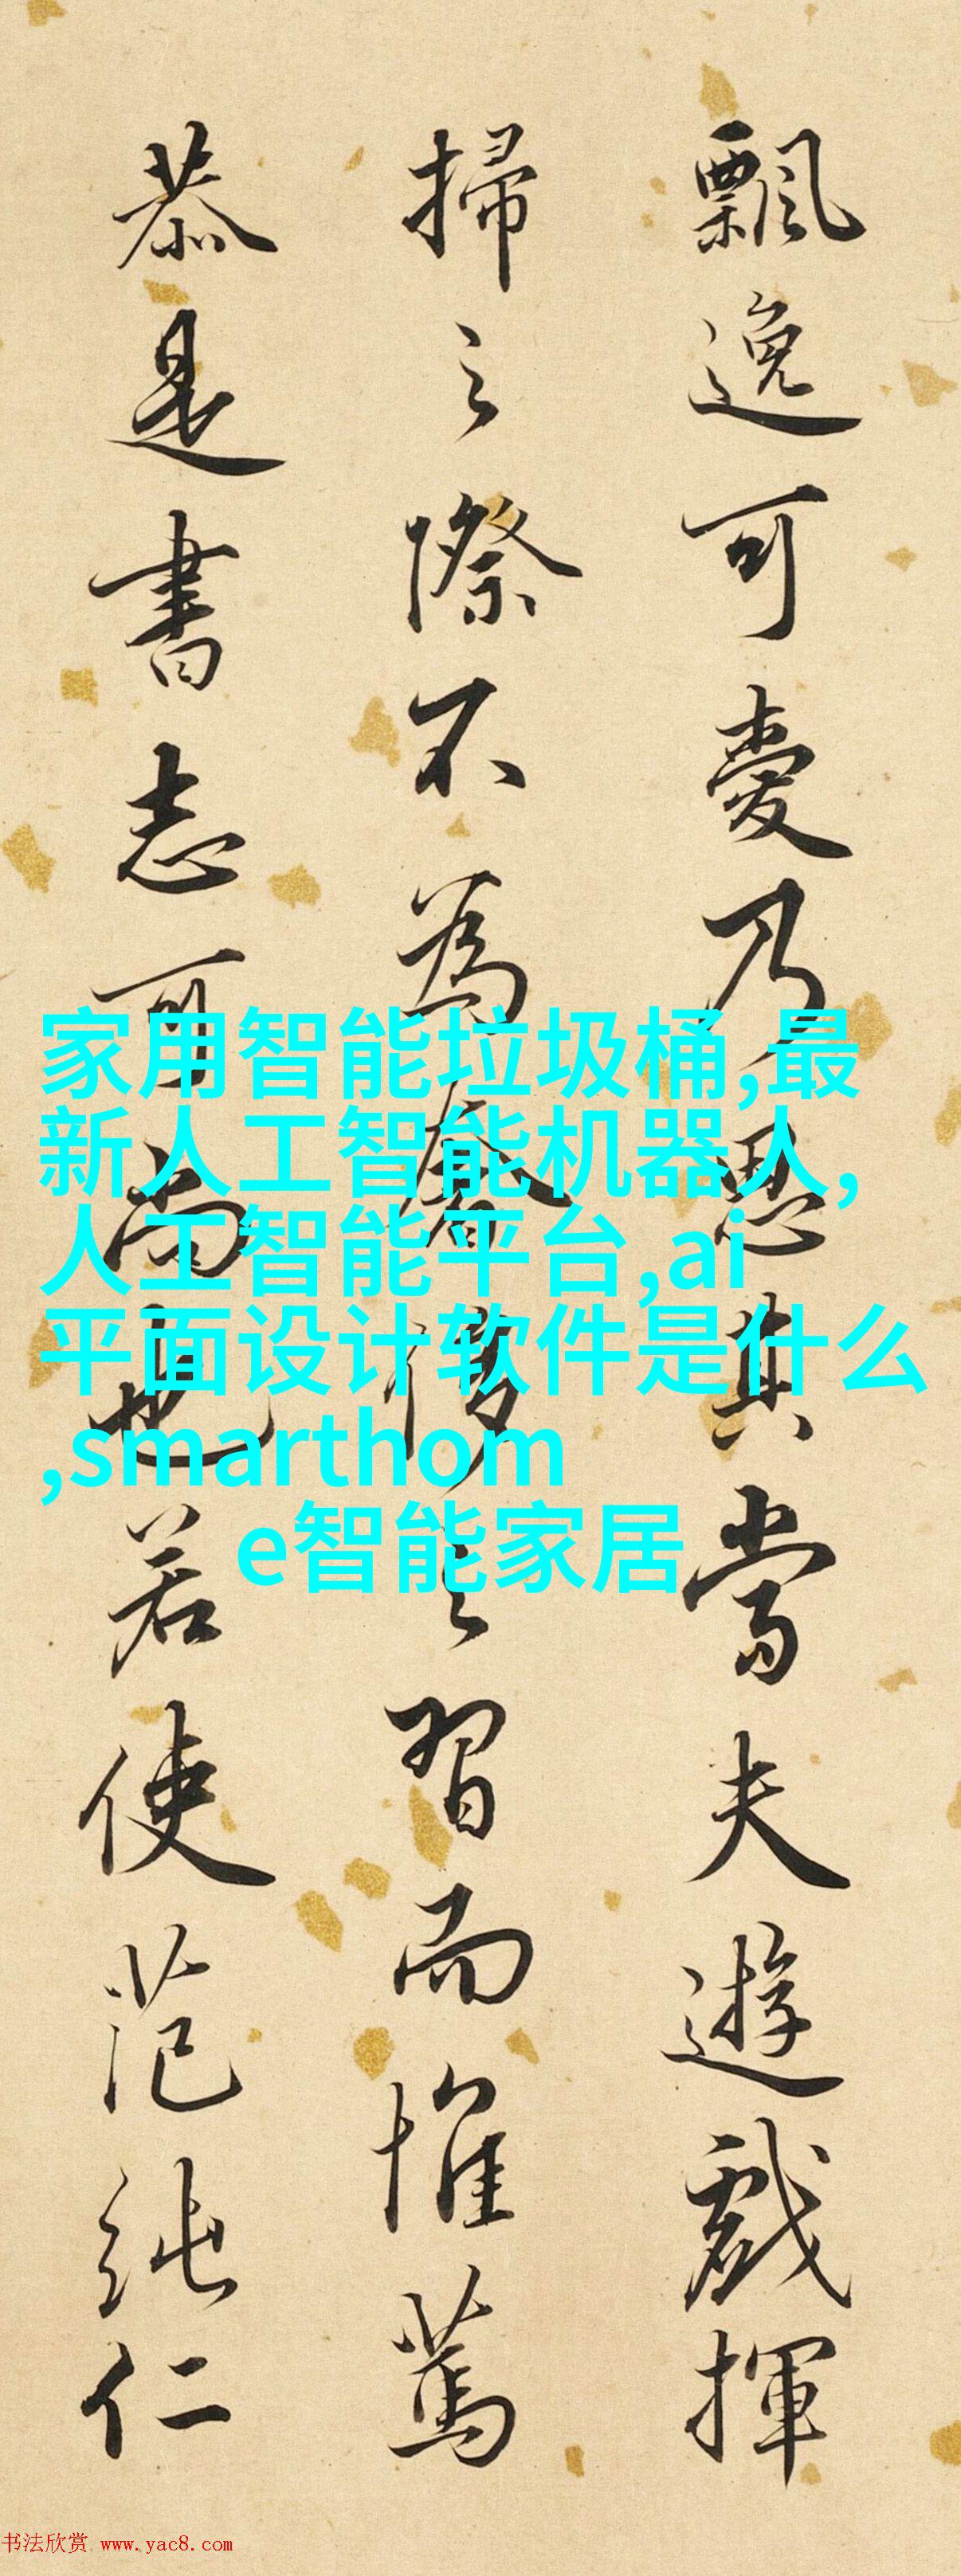 飄逸可愛乃思其當夫遊戲揮
掃之際不為奢侈之習而惟篤
恭是書志可尚也若使范純仁
家用智能垃圾桶,最
新人工智能机器人,
人工智能平台,ai
平面设计软件是什么
,smarthom
e智能家居
书法欣赏 www.yac8.com